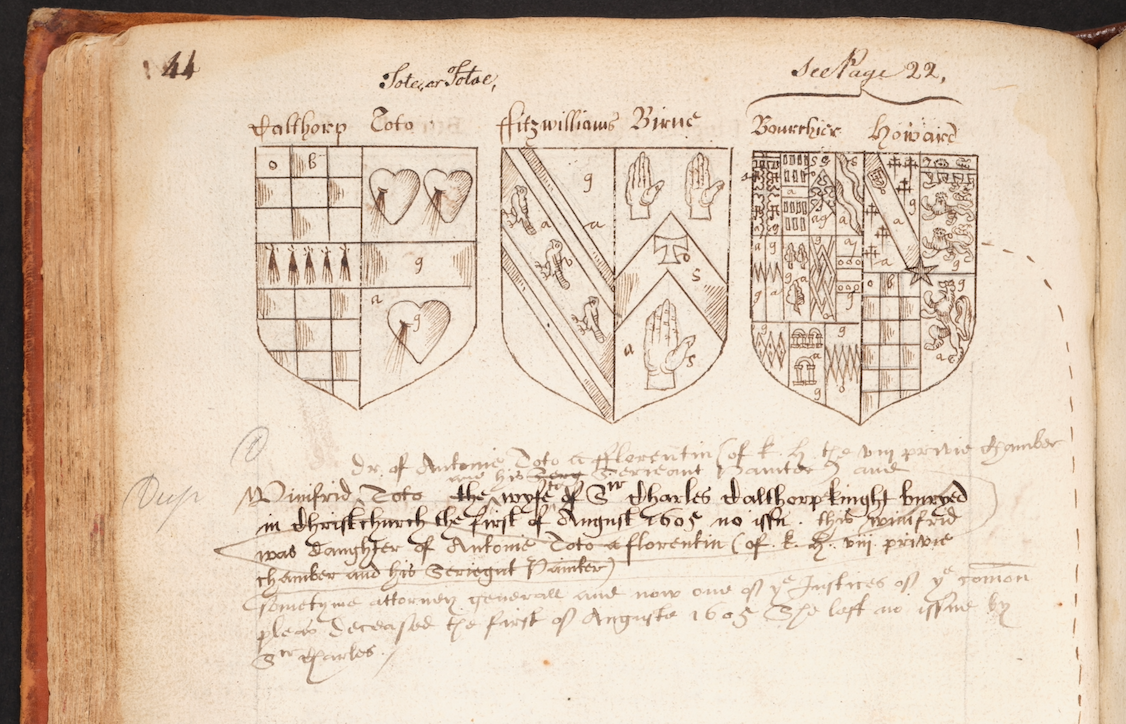 44
Tote, or Totae,
See Page 22,
Calthorp Toto
ffitzwilliams Birne
Bourchier Howard
o b
g
a
g
g
a a
s
a s
dr. of Antonie Toto a fflorentin (of k. h. the viii privie chamber
his Serieant Painter) and
Dup
Winifrid Toto the wyfe of Sr Charles Calthorp knight buryed
in Christchurch the first of August 1605 no issu. this winifrid
was daughter of Antonie Toto a florentin (of. k. h. viii. privie
chamber and his Serieant Painter)
sometyme attorney generall and now one of ye Justices of ye comon
pleas deceased the first of Auguste 1605 She left no issue by
Sr Charles.